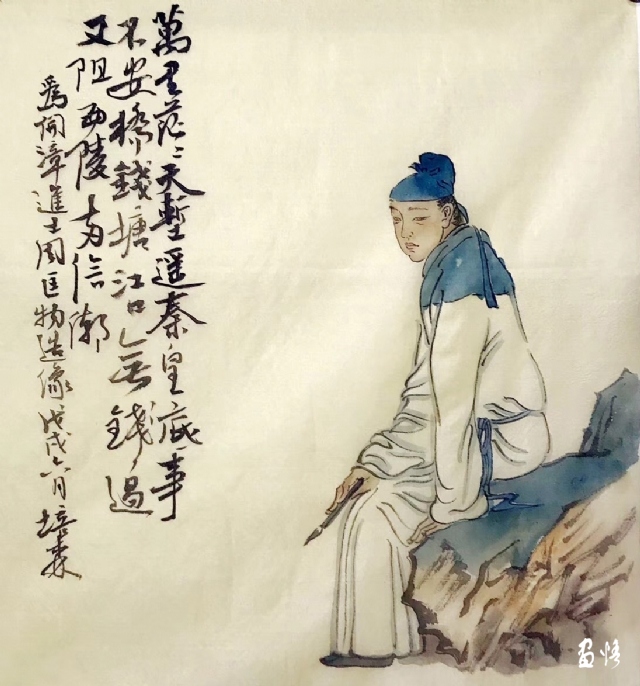 萬里茫〻天塹遥秦皇底事
不安橋錢塘江口無錢過
又阻西陵兩信潮
爲開漳進士周匡物造像戊戌六月培森